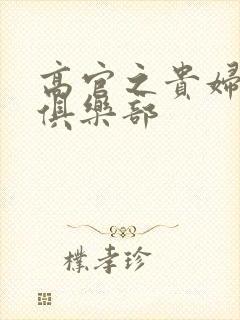 高官之貴婦
俱樂部
樸孝珍